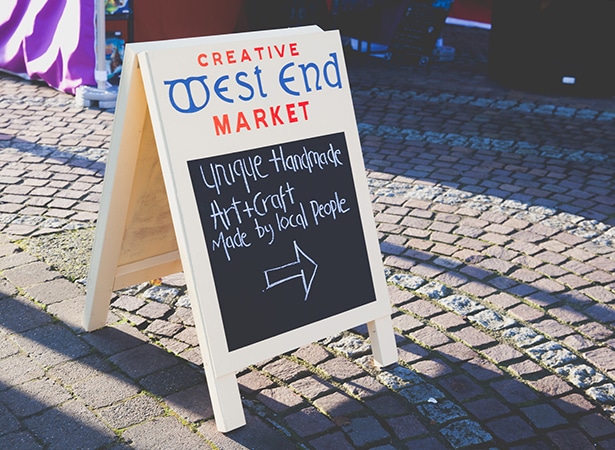 CREATIVE
West End
MARKET
Unique Handmade
Art+Craft
Made by local People